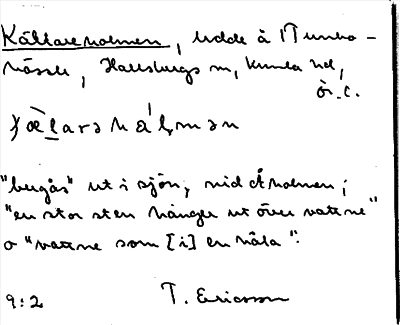 Källareholmen, udde å Tunbo-
hässle, Hallsbergs sn, Kumla hd,
Ör. l.
"bergås" ut i sjön, vid Åholmen;
"en stor sten hänger ut över vattne"
o "vattne som [i] en håla".
9:2 T. Ericsson